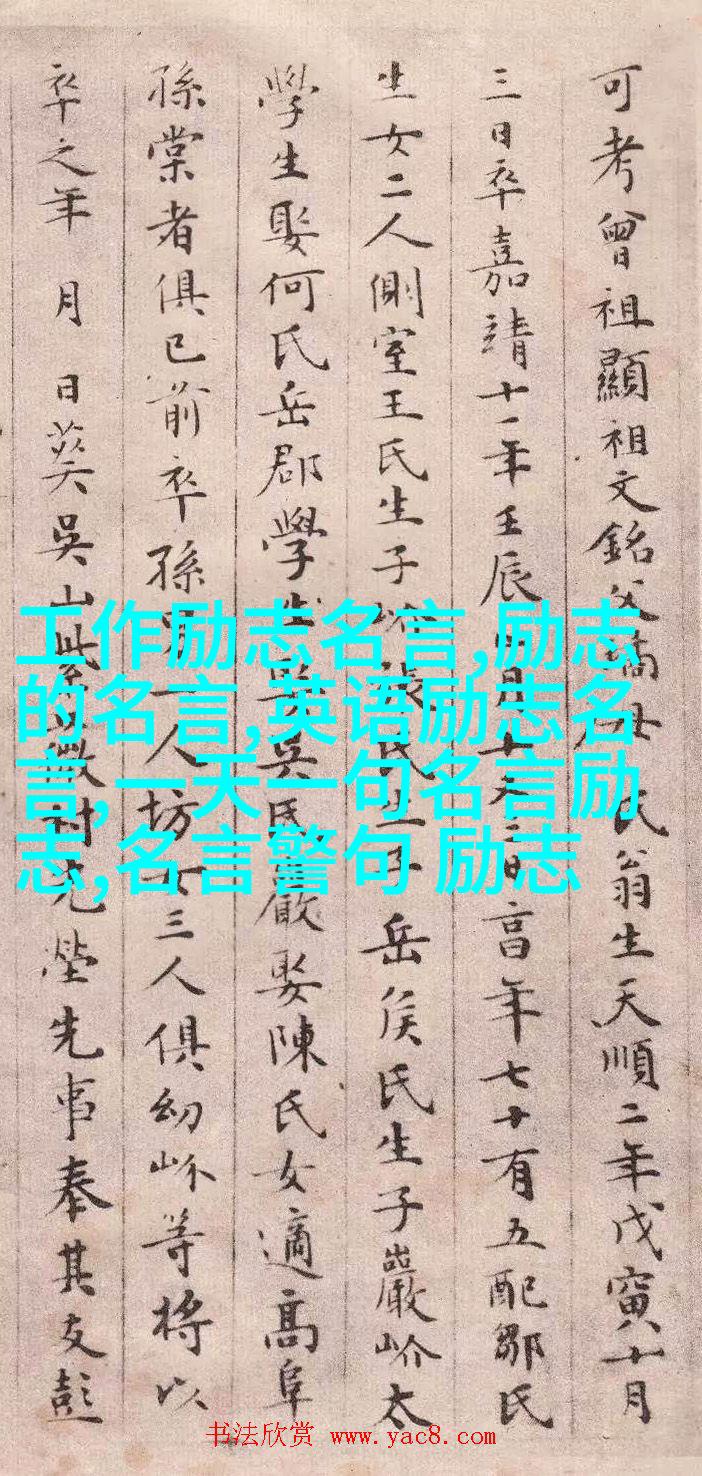 可考曾祖顯祖文銘父母 氏翁生天順二年戊寅十月
三日卒嘉靖十一年壬辰月十日享年七十有五配鄒氏
生女二人側室王氏生子岕張氏生子岳侯氏生子巖岕太
學生娶何氏岳郡學生娶吳氏巖娶陳氏女適高阜
孫棠者俱已前卒孫男一人坊女三人俱幼岕等將以
卒之年 月 日葬吳山紫薇村先塋先事奉其友彭
工作励志名言,励志
的名言,英语励志名
言,一天一句名言励
志,名言警句 励志
书法欣赏 www.yac8.com